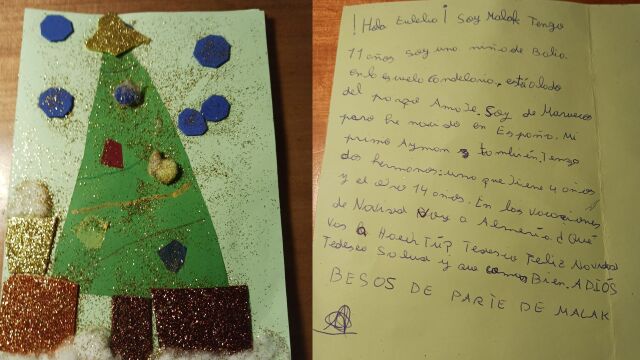 ¡Hola Eulalio! Soy Malak Tengo
11 años soy una niña de Balia.
en la escuela Candelaria, está al lado
del parque Amate. Soy de Marruecos
pero he nacido en España. Mi
primo Ayman y también. Tengo
dos hermanos: uno que tiene 4 años
y el otro 14 años. En las vacaciones
de Navidad voy a Almería. ¿Qué
vas a Hacer Tú? Te deseo Feliz Navidad
Te deseo Salud y que comas Bien. ADIÓS
BESOS DE PARTE DE MALAK